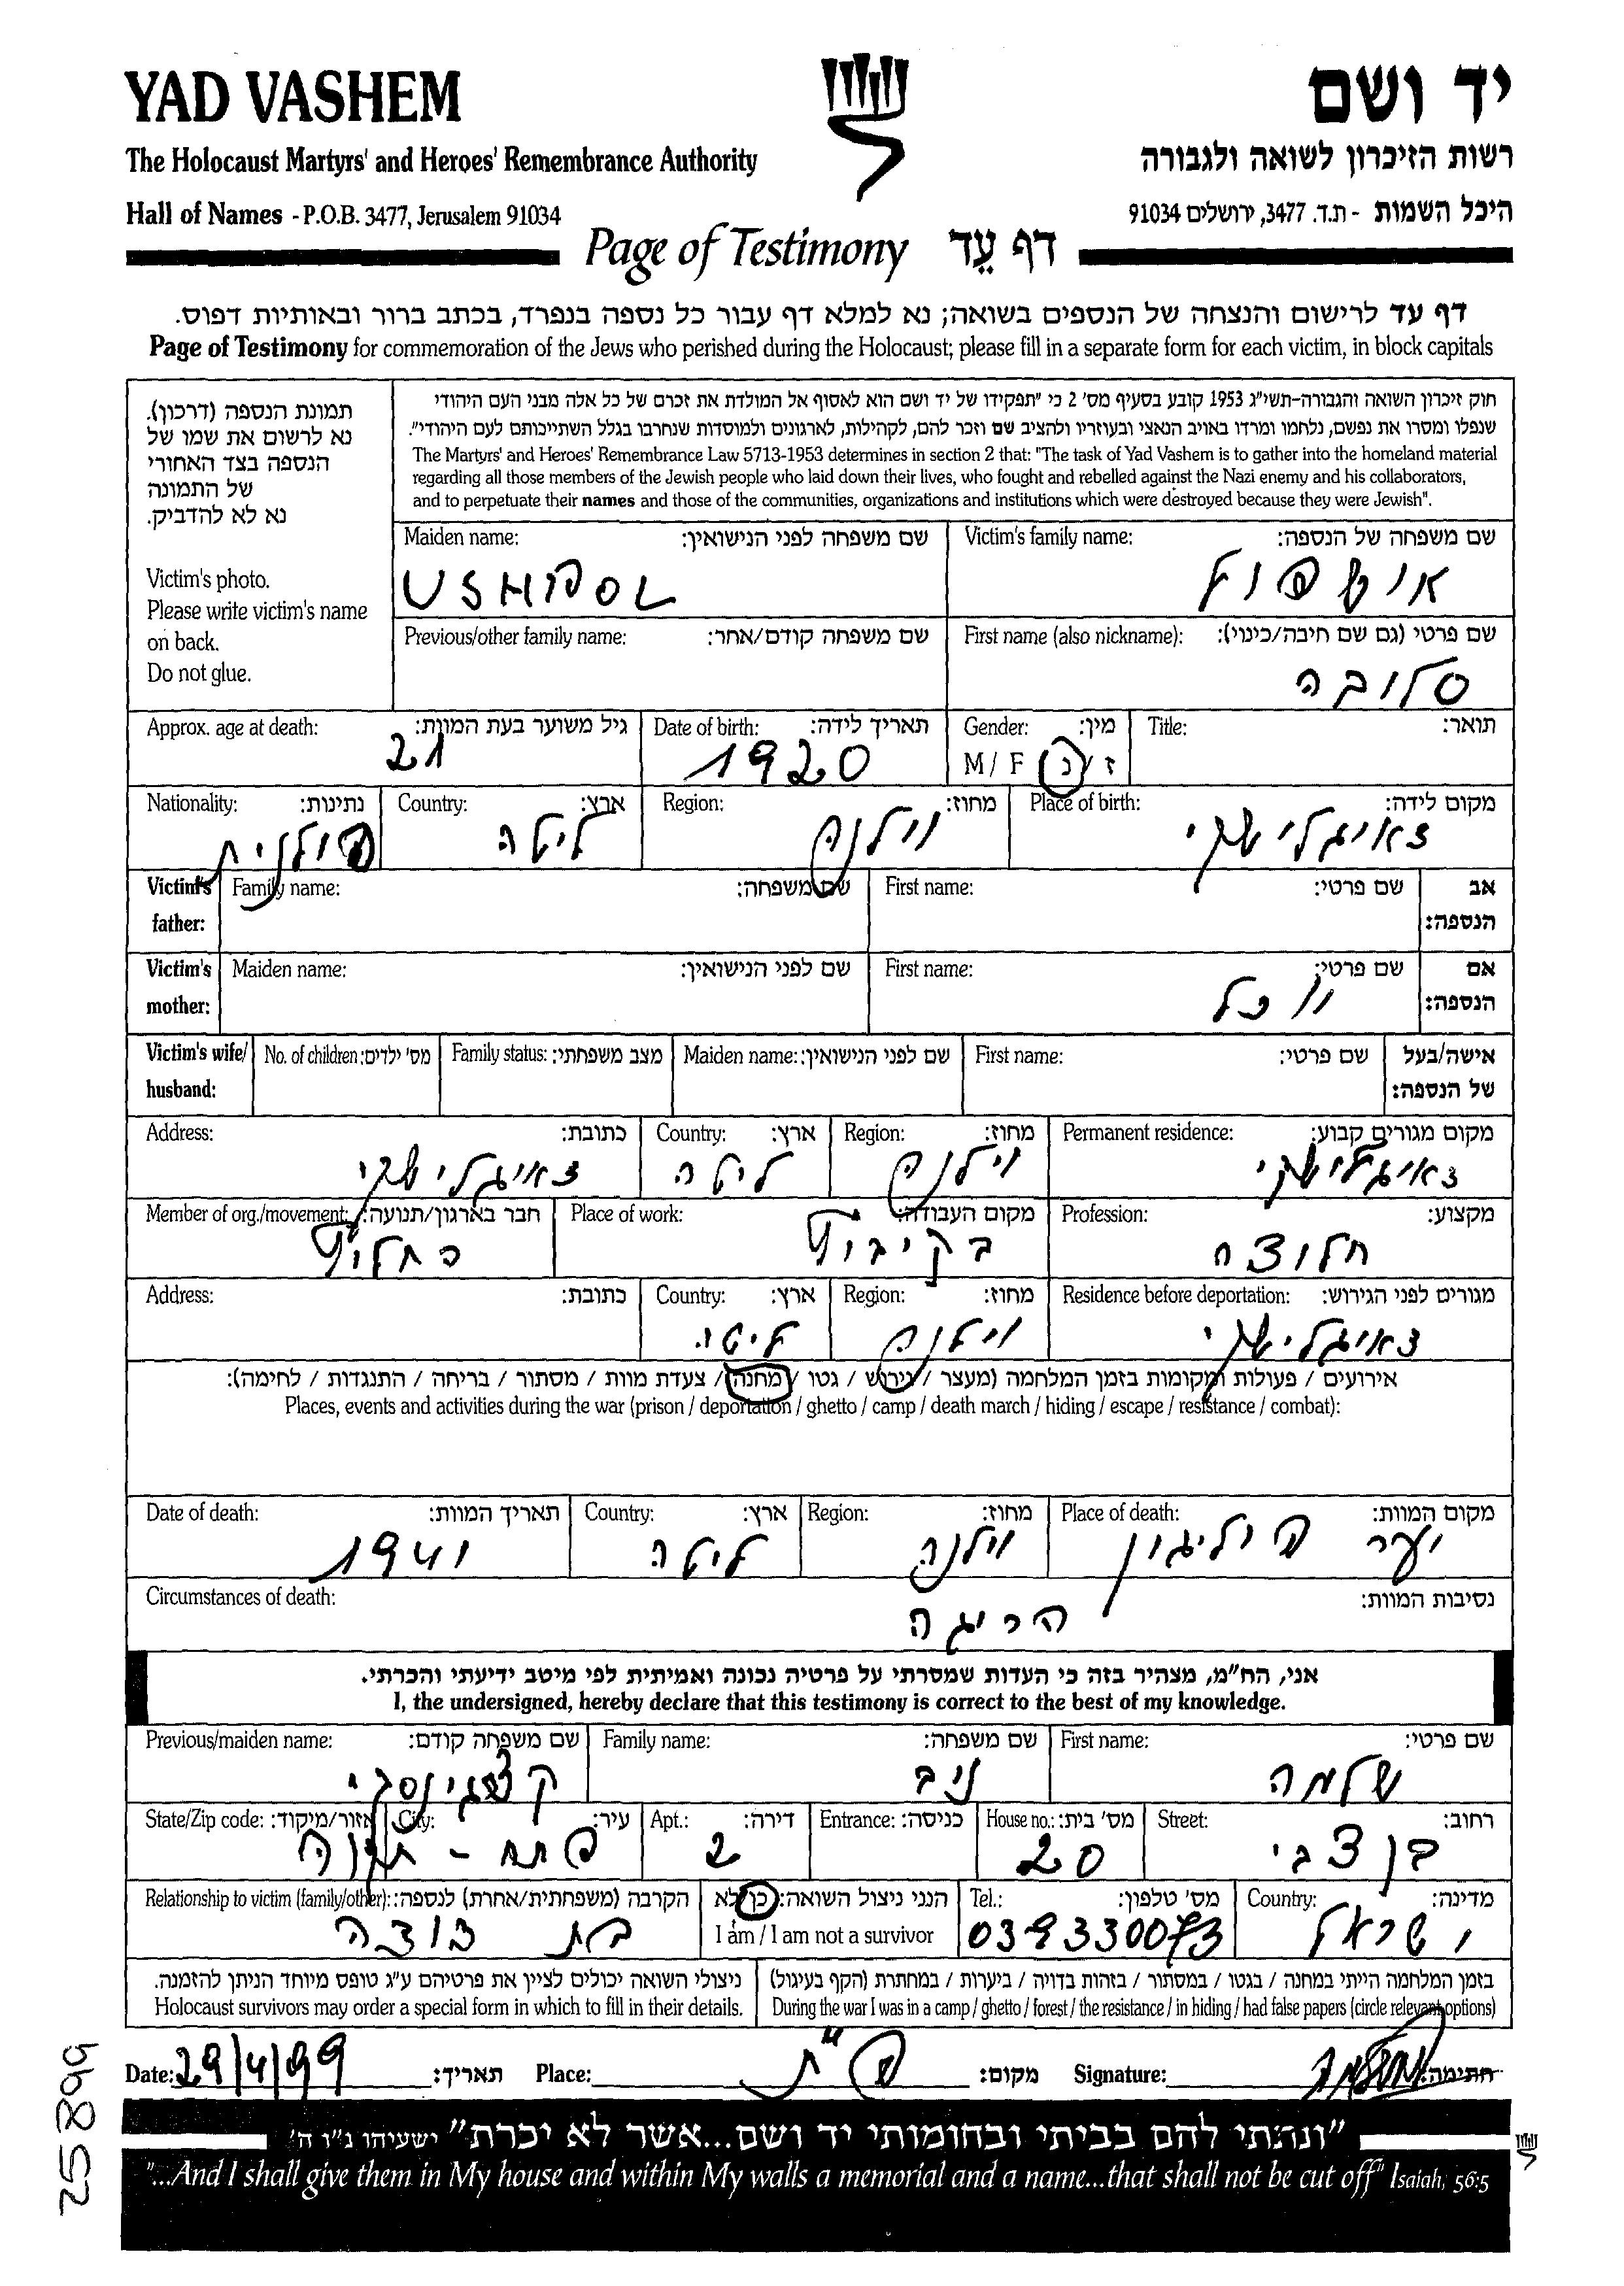 YAD VASHEM
יד ושם
The Holocaust Martyrs' and Heroes' Remembrance Authority
רשות הזיכרון לשואה ולגבורה
Hall of Names - P.O.B. 3477, Jerusalem 91034
היכל השמות - ת.ד. 3477, ירושלים 91034
Page of Testimony דף עֵד
דף עד לרישום והנצחה של הנספים בשואה; נא למלא דף עבור כל נספה בנפרד, בכתב ברור ובאותיות דפוס.
Page of Testimony for commemoration of the Jews who perished during the Holocaust; please fill in a separate form for each victim, in block capitals
תמונת הנספה (דרכון).
נא לרשום את שמו של
הנספה בצד האחורי
של התמונה
נא לא להדביק.
Victim's photo.
Please write victim's name
on back.
Do not glue.
חוק זיכרון השואה והגבורה-תשי"ג 1953 קובע בסעיף מס' 2 כי "תפקידו של יד ושם הוא לאסוף אל המולדת את זכרם של כל אלה מבני העם היהודי
שנפלו ומסרו את נפשם, נלחמו ומרדו באויב הנאצי ובעוזריו ולהציב שם וזכר להם, לקהילות, לארגונים ולמוסדות שנחרבו בגלל השתייכותם לעם היהודי".
The Martyrs' and Heroes' Remembrance Law 5713-1953 determines in section 2 that: "The task of Yad Vashem is to gather into the homeland material
regarding all those members of the Jewish people who laid down their lives, who fought and rebelled against the Nazi enemy and his collaborators,
and to perpetuate their names and those of the communities, organizations and institutions which were destroyed because they were Jewish".
Maiden name: שם משפחה לפני הנישואין:
USHPOL
Victim's family name: שם משפחה של הנספה:
אושפול
Previous/other family name: שם משפחה קודם/אחר:
First name (also nickname): שם פרטי (גם שם חיבה/כינוי):
סלובה
Approx. age at death: גיל משוער בעת המוות:
21
Date of birth: תאריך לידה:
1920
Gender: מין:
M / F ז / נ
Title: תואר:
Nationality: נתינות:
פולנית
Country: ארץ:
ליטה
Region: מחוז:
וילנה
Place of birth: מקום לידה:
צאיקלישקי
Victim's father: Family name: שם משפחה: First name: שם פרטי: אב הנספה:
Victim's mother: Maiden name: שם לפני הנישואין: First name: שם פרטי: אם הנספה:
Victim's wife/ husband: No. of children: מס' ילדים: Family status: מצב משפחתי: Maiden name: שם לפני הנישואין: First name: שם פרטי: אישה/בעל של הנספה:
Address: כתובת:
צאיקלישקי
Country: ארץ:
ליטה
Region: מחוז:
וילנה
Permanent residence: מקום מגורים קבוע:
צאיקלישקי
Member of org./movement: חבר בארגון/תנועה:
החלוץ
Place of work: מקום העבודה:
בקיבוץ
Profession: מקצוע:
חלוצה
Address: כתובת:
Country: ארץ:
ליטה
Region: מחוז:
וילנה
Residence before deportation: מגורים לפני הגירוש:
צאיקלישקי
אירועים / פעולות ומקומות בזמן המלחמה (מעצר / גירוש / גטו / מחנה / צעדת מוות / מסתור / בריחה / התנגדות / לחימה):
Places, events and activities during the war (prison / deportation / ghetto / camp / death march / hiding / escape / resistance / combat):
Date of death: תאריך המוות:
1941
Country: ארץ:
ליטה
Region: מחוז:
וילנה
Place of death: מקום המוות:
יער פוליגון
Circumstances of death: נסיבות המוות:
הריגה
אני, הח"מ, מצהיר בזה כי העדות שמסרתי על פרטיה נכונה ואמיתית לפי מיטב ידיעתי והכרתי.
I, the undersigned, hereby declare that this testimony is correct to the best of my knowledge.
Previous/maiden name: שם משפחה קודם:
Family name: שם משפחה:
ניב
First name: שם פרטי:
שלמה
State/Zip code: אזור/מיקוד: City: עיר:
פתח - תקוה
Apt.: דירה:
2
Entrance: כניסה:
House no.: מס' בית:
20
Street: רחוב:
בן צבי
Relationship to victim (family/other): הקרבה (משפחתית/אחרת) לנספה:
בת דודה
הנני ניצול השואה: כן / לא
I am / I am not a survivor
Tel.: מס' טלפון:
039330073
Country: מדינה:
ישראל
ניצולי השואה יכולים לציין את פרטיהם ע"ג טופס מיוחד הניתן להזמנה.
Holocaust survivors may order a special form in which to fill in their details.
בזמן המלחמה הייתי במחנה / בגטו / במסתור / בזהות בדויה / ביערות / במחתרת (הקף בעיגול)
During the war I was in a camp / ghetto / forest / the resistance / in hiding / had false papers (circle relevant options)
Date: 29/4/99 תאריך: Place: פ"ת מקום: Signature: חתימה:
"ונתתי להם בביתי ובחומותי יד ושם...אשר לא יכרת" ישעיהו נ"ו ה'
"...And I shall give them in My house and within My walls a memorial and a name...that shall not be cut off" Isaiah, 56:5
25899